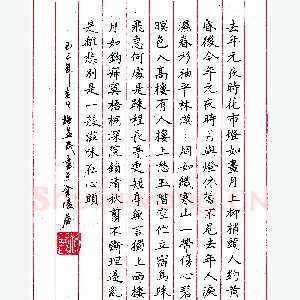 去年元夜時花市燈如晝月上柳梢頭人約黄
昏後今年元夜時月與燈依舊不見去年人淚
濕春衫袖平林漠〻烟如織寒山一帶傷心碧
暝色入高樓有人樓上愁玉階空佇立宿鳥歸
飛急何處是歸程長亭更短亭無言獨上西樓
月如鈎寂寞梧桐深院鎖清秋剪不斷理還亂
是離愁別是一般滋味在心頭